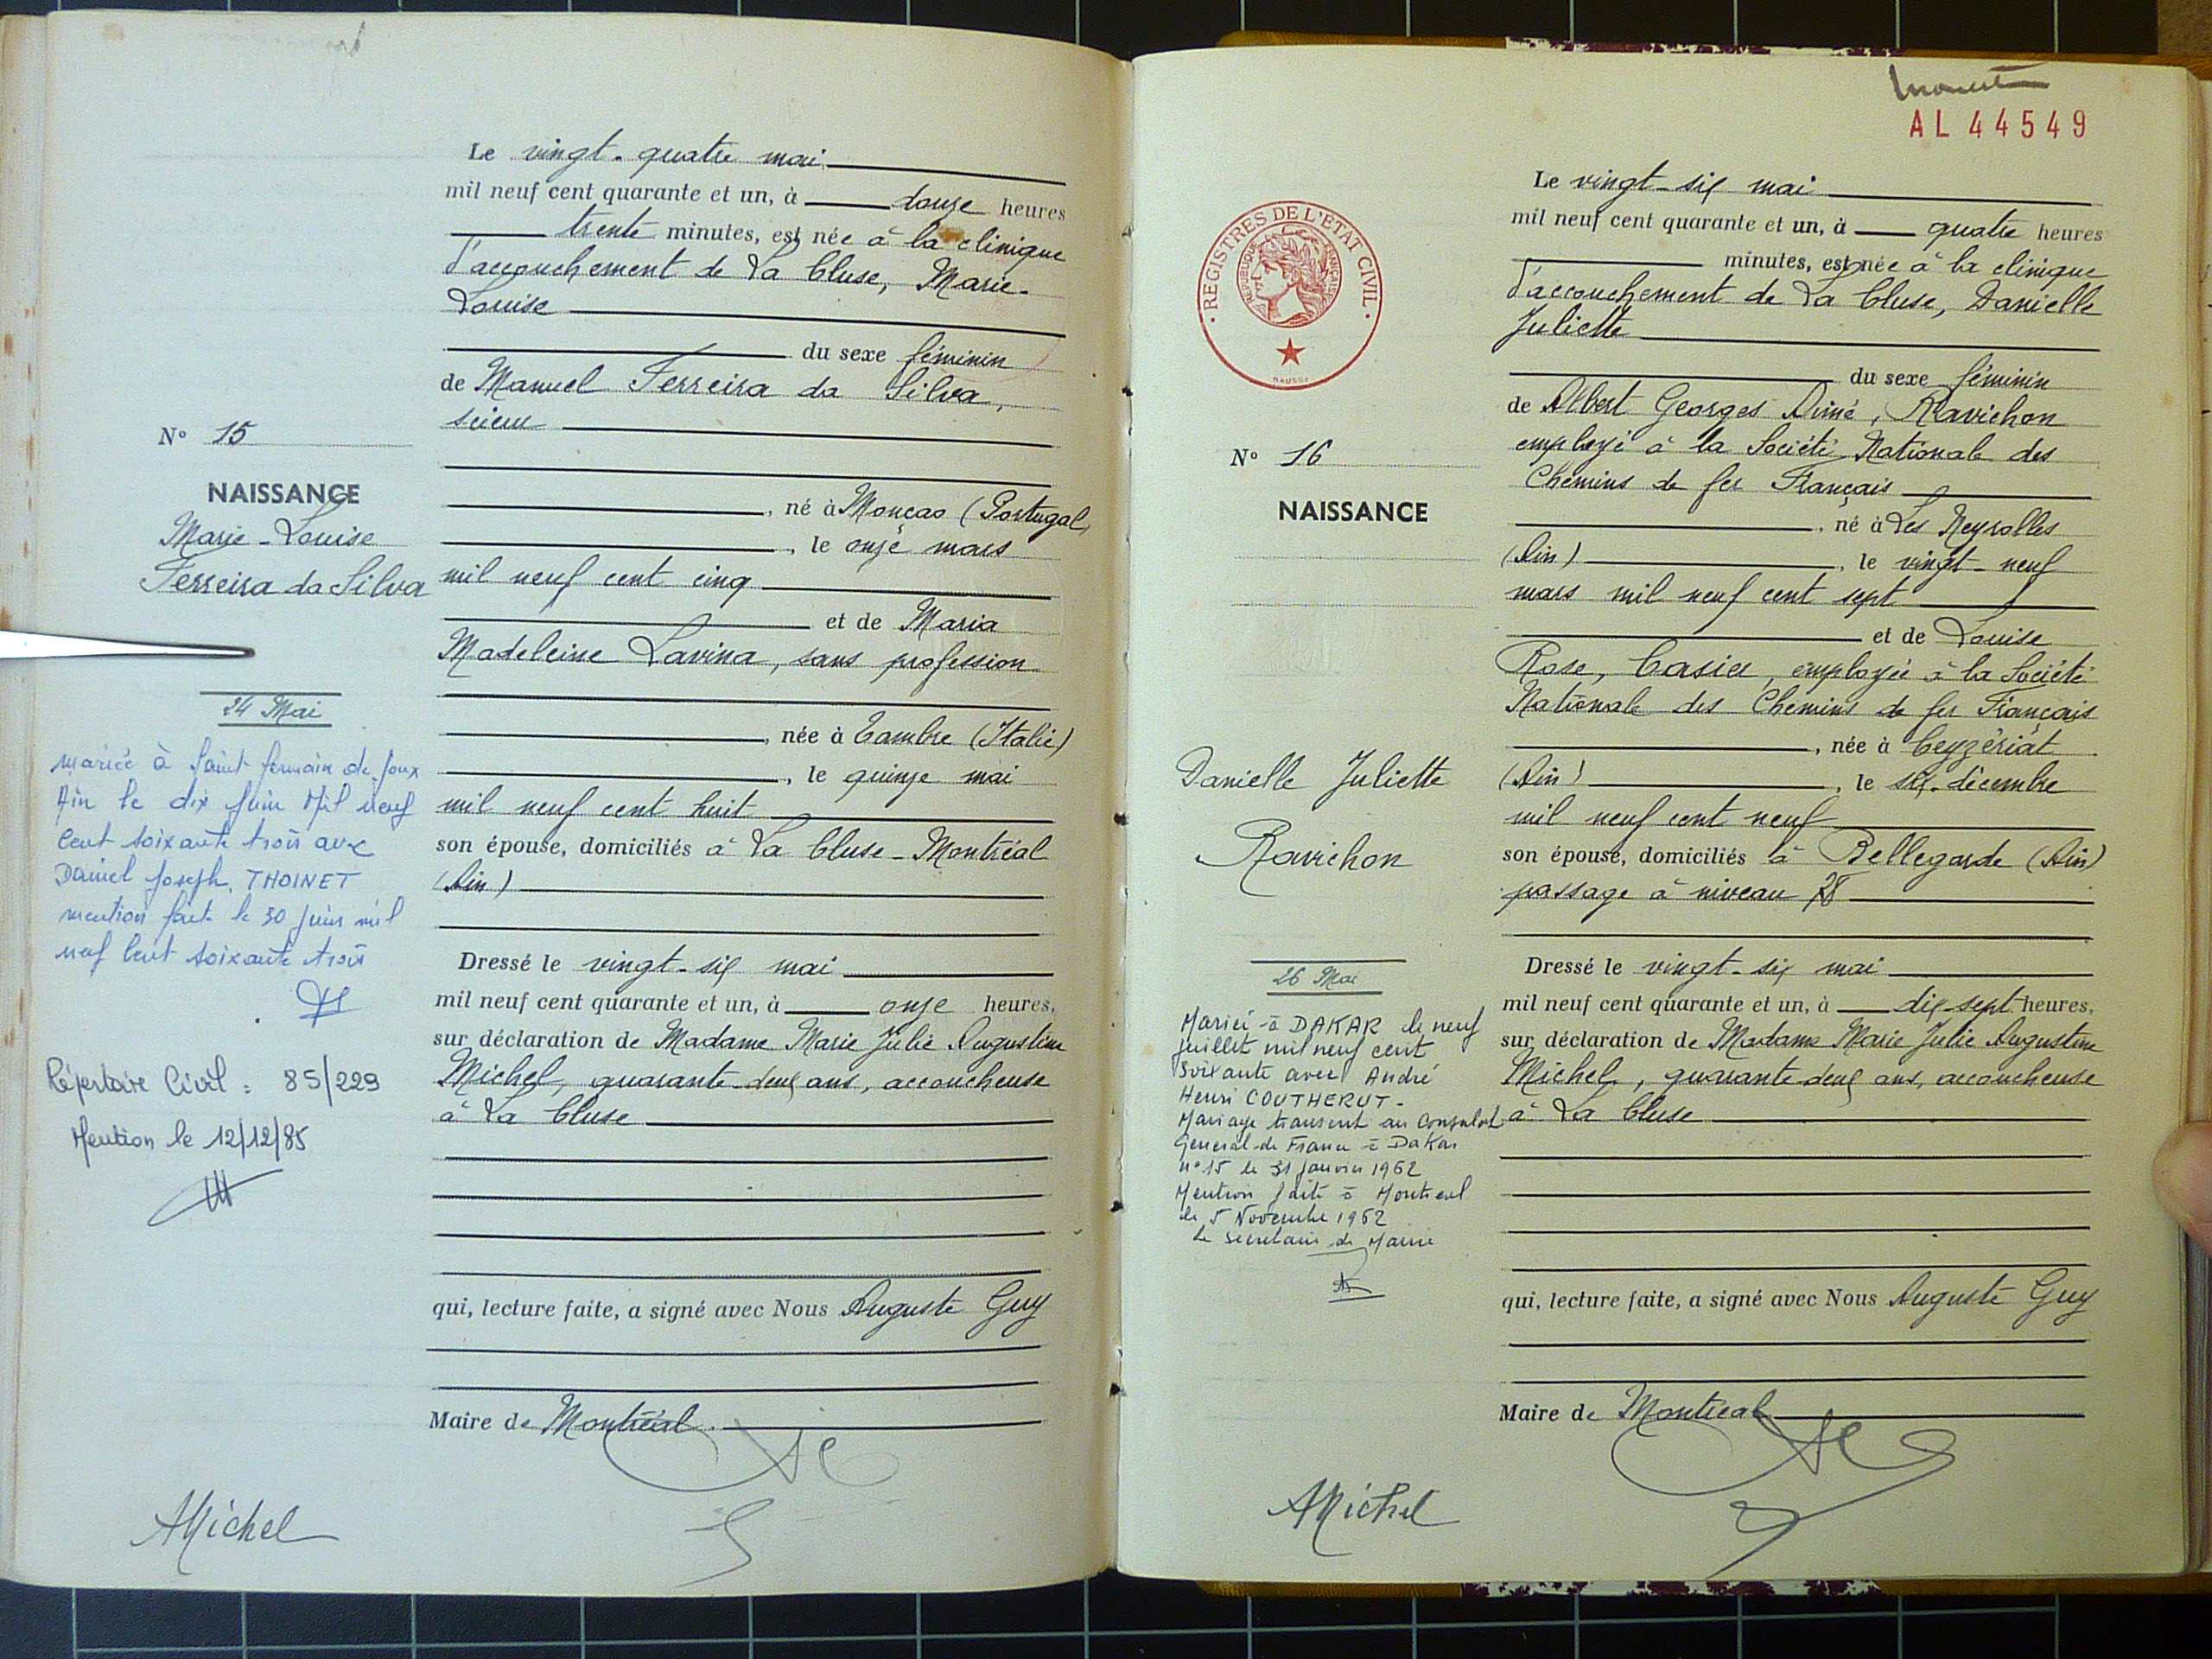 Le vingt-quatre mai
mil neuf cent quarante et un, à douze heures
trente minutes, est née à la clinique
d'accouchement de La Cluse, Marie-
Louise
du sexe féminin
de Manuel Ferreira da Silva,
scieur
, né à Monçao (Portugal)
, le onze mars
mil neuf cent cinq
et de Maria
Madeleine Lavina, sans profession
, née à Tambre (Italie)
, le quinze mai
mil neuf cent huit
son épouse, domiciliés à La Cluse-Montréal
(Ain)
Dressé le vingt-six mai
mil neuf cent quarante et un, à onze heures,
sur déclaration de Madame Marie Julie Augustine
Michel, quarante-deux ans, accoucheuse
à La Cluse
qui, lecture faite, a signé avec Nous Auguste Guy
Maire de Montréal.
N° 15
NAISSANCE
Marie-Louise
Ferreira da Silva
24 Mai
mariée à Saint Germain de Joux
Ain le dix Juin Mil neuf
Cent soixante trois avec
Daniel Joseph THOINET
mention faite le 30 Juin mil
neuf Cent soixante trois
Répertoire Civil : 85/229
Mention le 12/12/85
AMichel
AL 44549
REGISTRES DE L'ÉTAT CIVIL
REPUBLIQUE FRANÇAISE
Le vingt-six mai
mil neuf cent quarante et un, à quatre heures
minutes, est née à la clinique
d'accouchement de La Cluse, Danielle
Juliette
du sexe féminin
de Albert Georges Aimé, Ravichon
employé à la Société Nationale des
Chemins de fer Français
, né à Les Neyrolles
(Ain), le vingt-neuf
mars mil neuf cent sept
et de Louise
Rose, Casier, employée à la Société
Nationale des Chemins de fer Français
, née à Ceyzériat
(Ain), le six décembre
mil neuf cent neuf
son épouse, domiciliés à Bellegarde (Ain)
passage à niveau
Dressé le vingt-six mai
mil neuf cent quarante et un, à dix-sept heures,
sur déclaration de Madame Marie Julie Augustine
Michel, quarante deux ans, accoucheuse
à La Cluse
qui, lecture faite, a signé avec Nous Auguste Guy
Maire de Montréal
N° 16
NAISSANCE
Danielle Juliette
Ravichon
26 Mai
Mariée à DAKAR le neuf
Juillet mil neuf cent
soixante avec André
Henri COUTHERUT-
Mariage transcrit au Consulat
Général de France à Dakar
n° 15 le 31 Janvier 1962
Mention faite à Montreal
le 5 Novembre 1962
Le Secrétaire de Mairie
AMichel